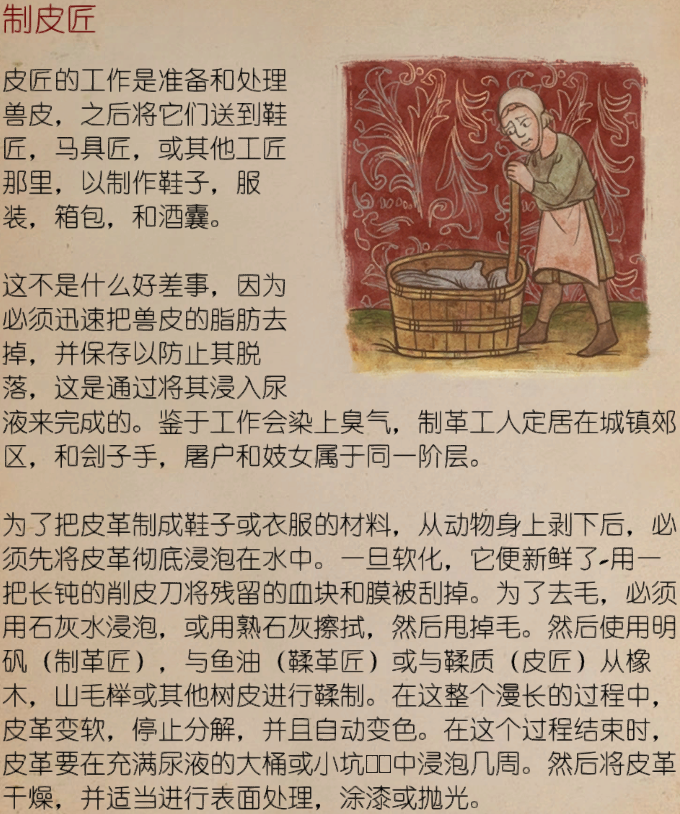 制皮匠
皮匠的工作是准备和处理
兽皮，之后将它们送到鞋
匠，马具匠，或其他工匠
那里，以制作鞋子，服
装，箱包，和酒囊。
这不是什么好差事，因为
必须迅速把兽皮的脂肪去
掉，并保存以防止其脱
落，这是通过将其浸入尿
液来完成的。鉴于工作会染上臭气，制革工人定居在城镇郊
区，和刽子手，屠户和妓女属于同一阶层。
为了把皮革制成鞋子或衣服的材料，从动物身上剥下后，必
须先将皮革彻底浸泡在水中。一旦软化，它便新鲜了-用一
把长钝的削皮刀将残留的血块和膜被刮掉。为了去毛，必须
用石灰水浸泡，或用熟石灰擦拭，然后甩掉毛。然后使用明
矾（制革匠），与鱼油（鞣革匠）或与鞣质（皮匠）从橡
木，山毛榉或其他树皮进行鞣制。在这整个漫长的过程中，
皮革变软，停止分解，并且自动变色。在这个过程结束时，
皮革要在充满尿液的大桶或小坑□□中浸泡几周。然后将皮革
干燥，并适当进行表面处理，涂漆或抛光。